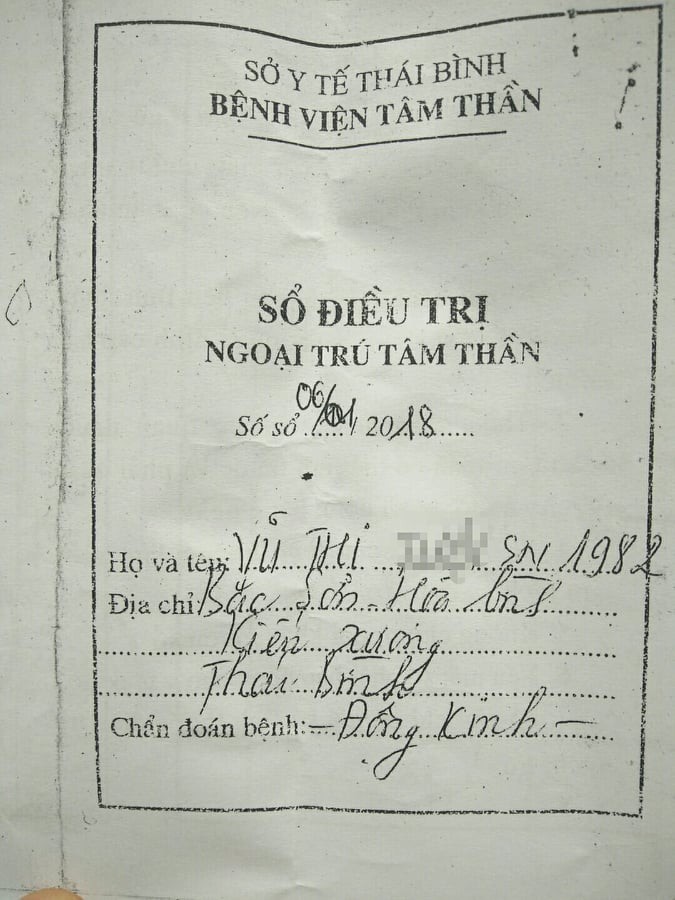 SỞ Y TẾ THÁI BÌNH
BỆNH VIỆN TÂM THẦN
SỔ ĐIỀU TRỊ
NGOẠI TRÚ TÂM THẦN
Số sổ 06/01/2018
Họ và tên: VŨ THỊ SN 1982
Địa chỉ Bắc Sơn - Hòa bình
Kiến xương
Thái Bình
Chẩn đoán bệnh: - Động Kinh -